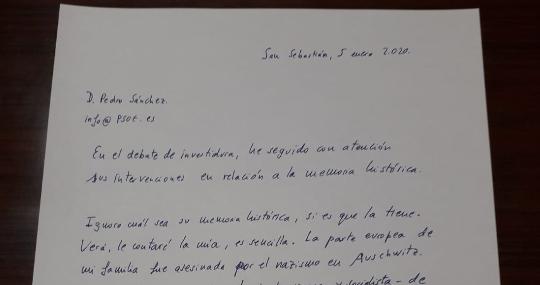 San Sebastián, 5 enero 2.020.
D. Pedro Sánchez.
info@psoe.es
En el debate de investidura, he seguido con atención
sus intervenciones en relación a la memoria histórica.
Ignoro cuál sea su memoria histórica, si es que la tiene.
Verá, le contaré la mía, es sencilla. La parte europea de
mi familia fue asesinada por el nazismo en Auschwitz.
socialista - de